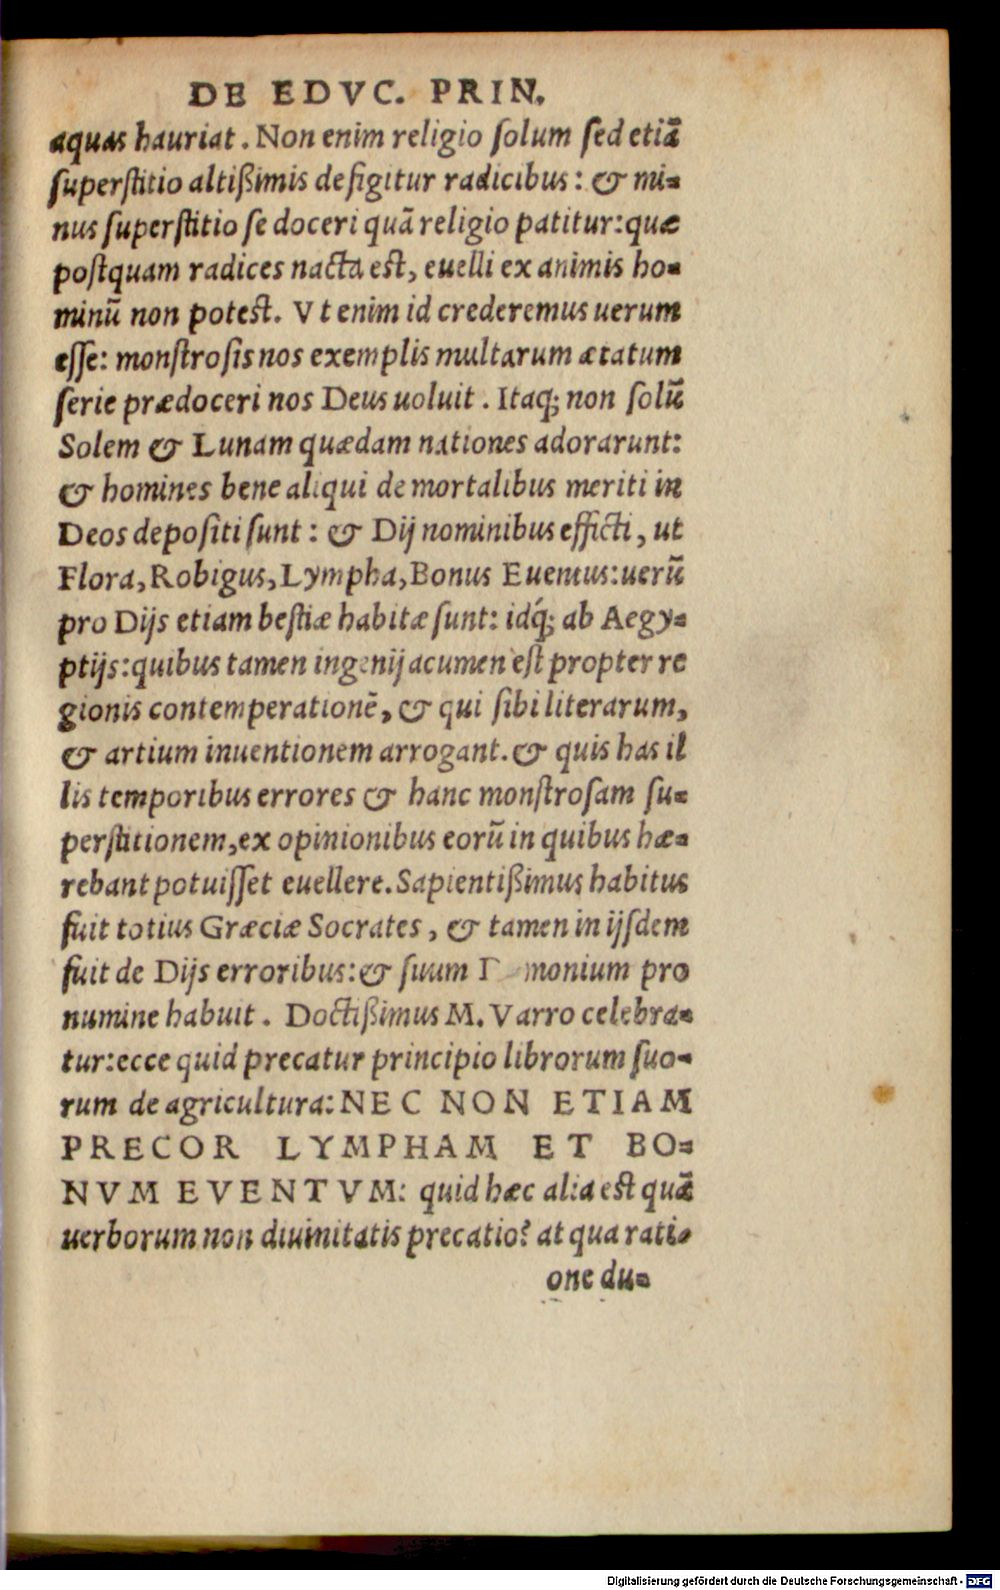 DE EDVC. PRIN.
aquas hauriat. Non enim religio ſolum ſed etiã
ſuperſtitio altißimis defigitur radicibus: & mi-
nus ſuperſtitio ſe doceri quã religio patitur: quæ
poſtquam radices nacta eſt, euelli ex animis ho-
minũ non poteſt. V t enim id crederemus uerum
eſſe: monſtroſis nos exemplis multarum ætatum
ſerie prædoceri nos Deus uoluit. Itaq; non ſolũ
Solem & Lunam quædam nationes adorarunt:
& homines bene aliqui de mortalibus meriti in
Deos depoſiti ſunt: & Dij nominibus efficti, ut
Flora, Robigus, Lympha, Bonus Euentus: uerũ
pro Dijs etiam beſtiæ habitæ ſunt: idq́; ab Aegy-
ptijs: quibus tamen ingenij acumen eſt propter re
gionis contemperationẽ, & qui ſibi literarum,
& artium inuentionem arrogant. & quis has il
lis temporibus errores & hanc monſtroſam ſu-
perſtitionem, ex opinionibus eorũ in quibus hæ-
rebant potuiſſet euellere. Sapientißimus habitus
fuit totius Græciæ Socrates, & tamen in ijſdem
fuit de Dijs erroribus: & ſuum monium pro
numine habuit. Doctißimus M. Varro celebra-
tur: ecce quid precatur principio librorum ſuo-
rum de agricultura: NEC NON ETIAM
PRECOR LYMPHAM ET BO-
NVM EVENTVM: quid hæc alia eſt quã
uerborum non diuinitatis precatio? at qua rati-
one du-
Digitalisierung gefördert durch die Deutsche Forschungsgemeinschaft - DFG